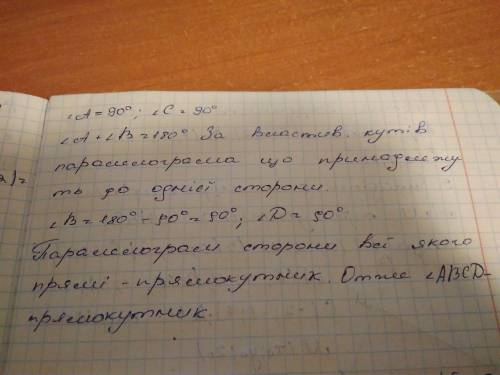 ∠A = 90°; ∠C = 90°
∠A + ∠B = 180° За властив. кутів
паралелограма що принадлежу
ть до однієї сторони.
∠B = 180° - 90° = 90°; ∠D = 90°
Паралелограм сторони всі якого
прямі - прямокутник. Отже ∠ABCD-
прямокутник.